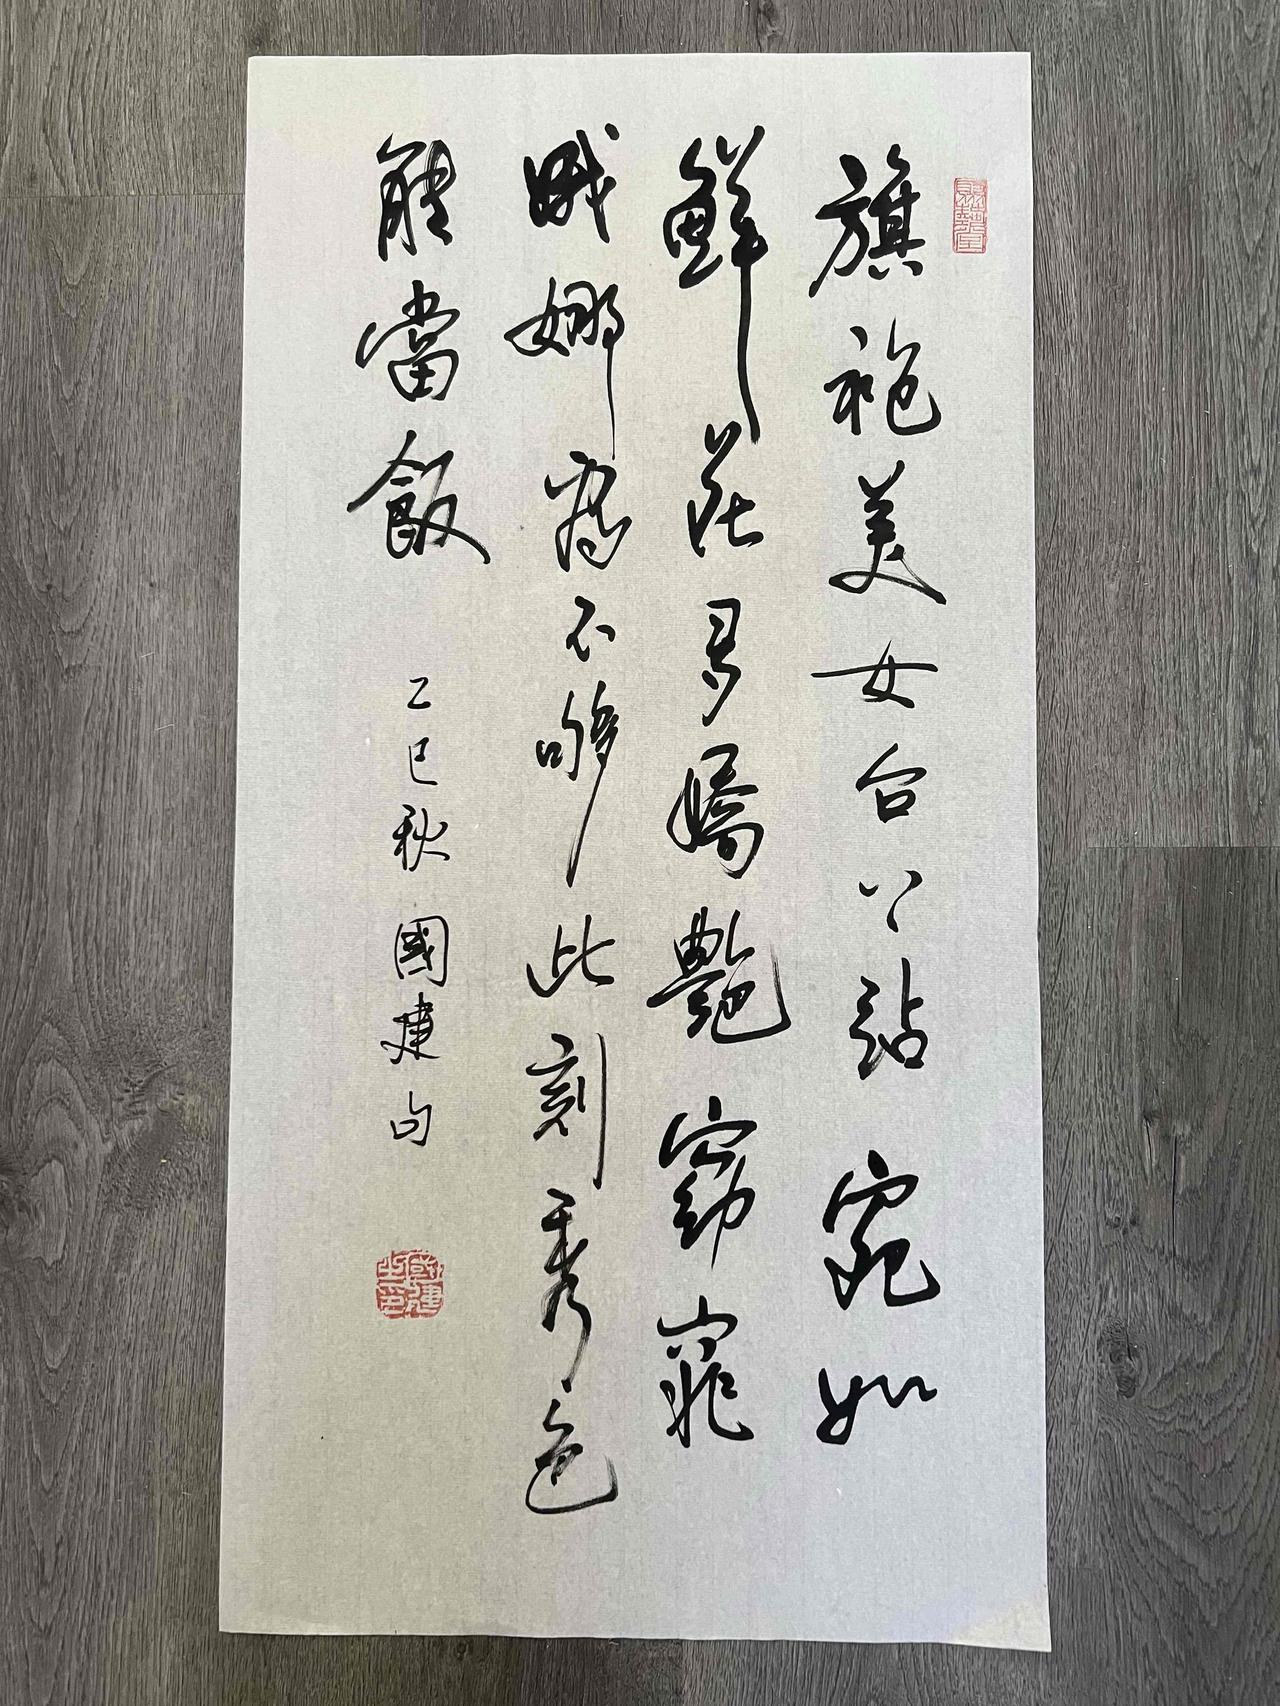 旗袍美女台上站宛如
鮮花多嬌艷窈窕
娜看不够此刻秀色
能當飯
乙巳秋國建句
國建之印